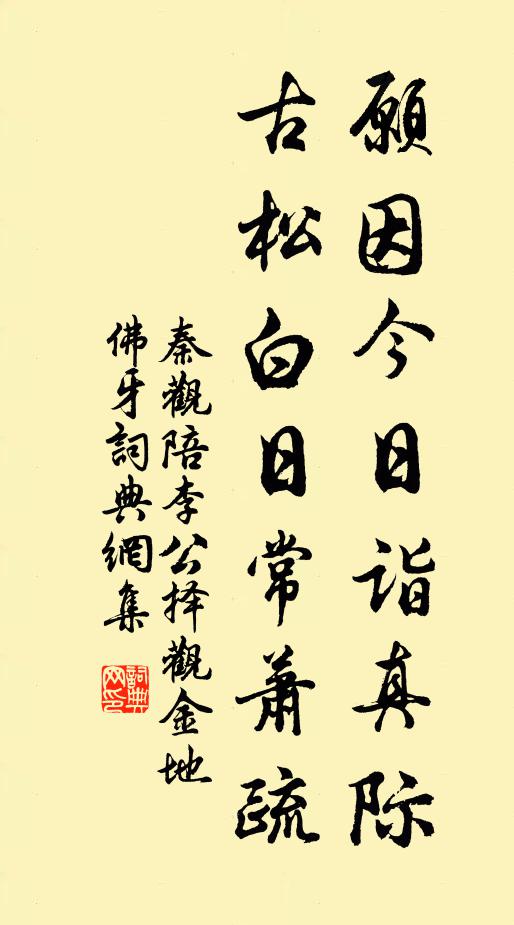 願因今日詣真际
古松白日常蕭疏
秦觀陪李公择觀金地
佛牙詞典網集
詞典
网印